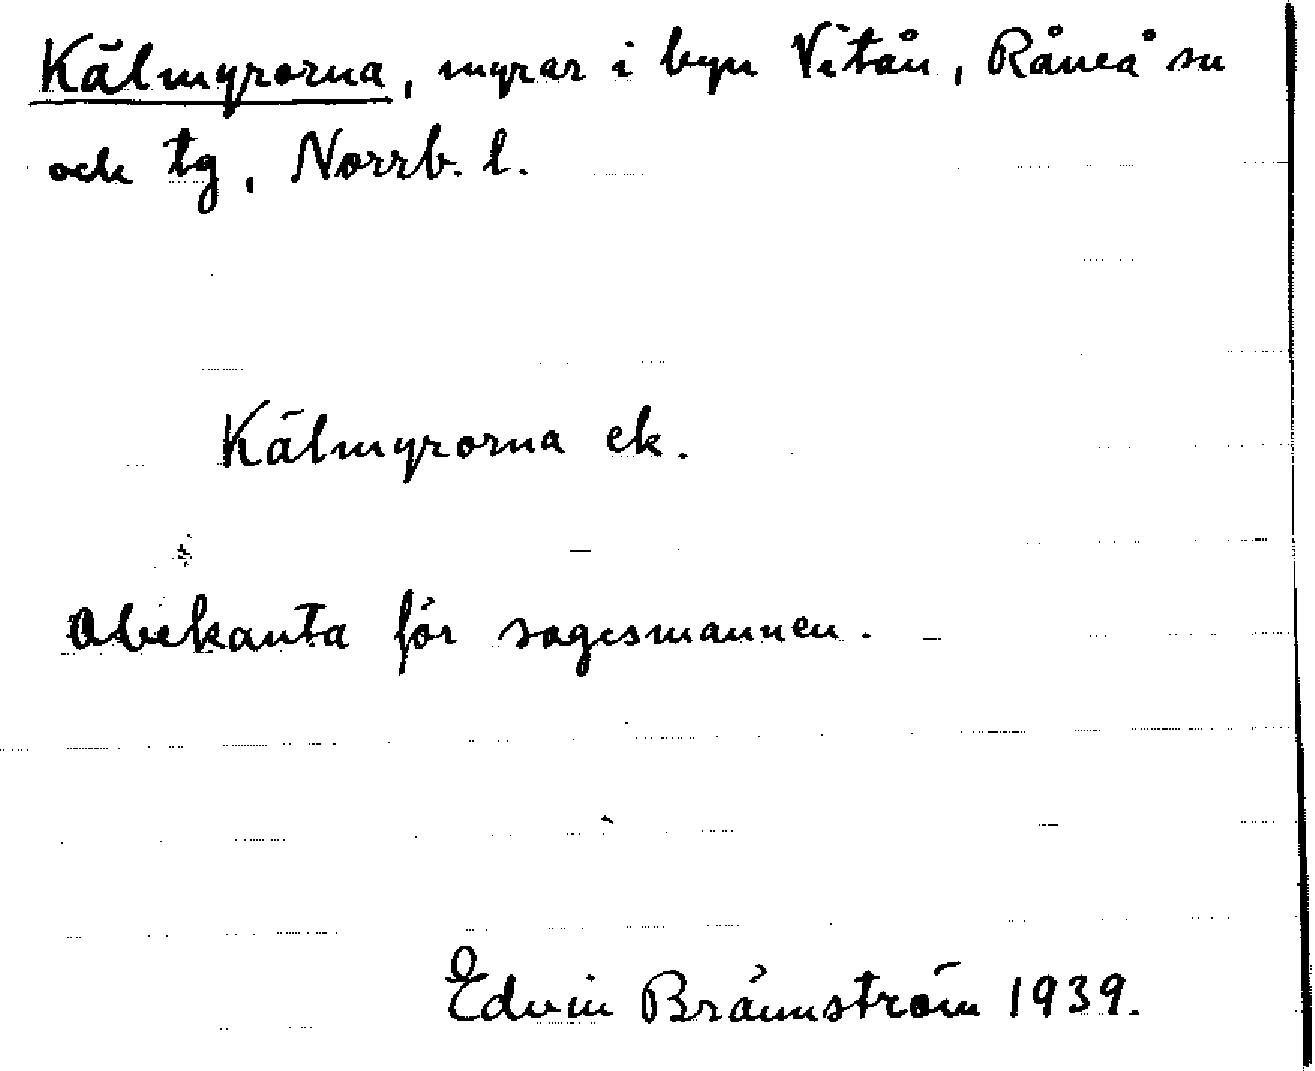 Kälmyrorna, myrar i byn Vitån, Råneå sn
och tg, Norrb. l.
Kälmyrorna ek.
Obekanta för sagesmannen.
Edvin Brännström 1939.